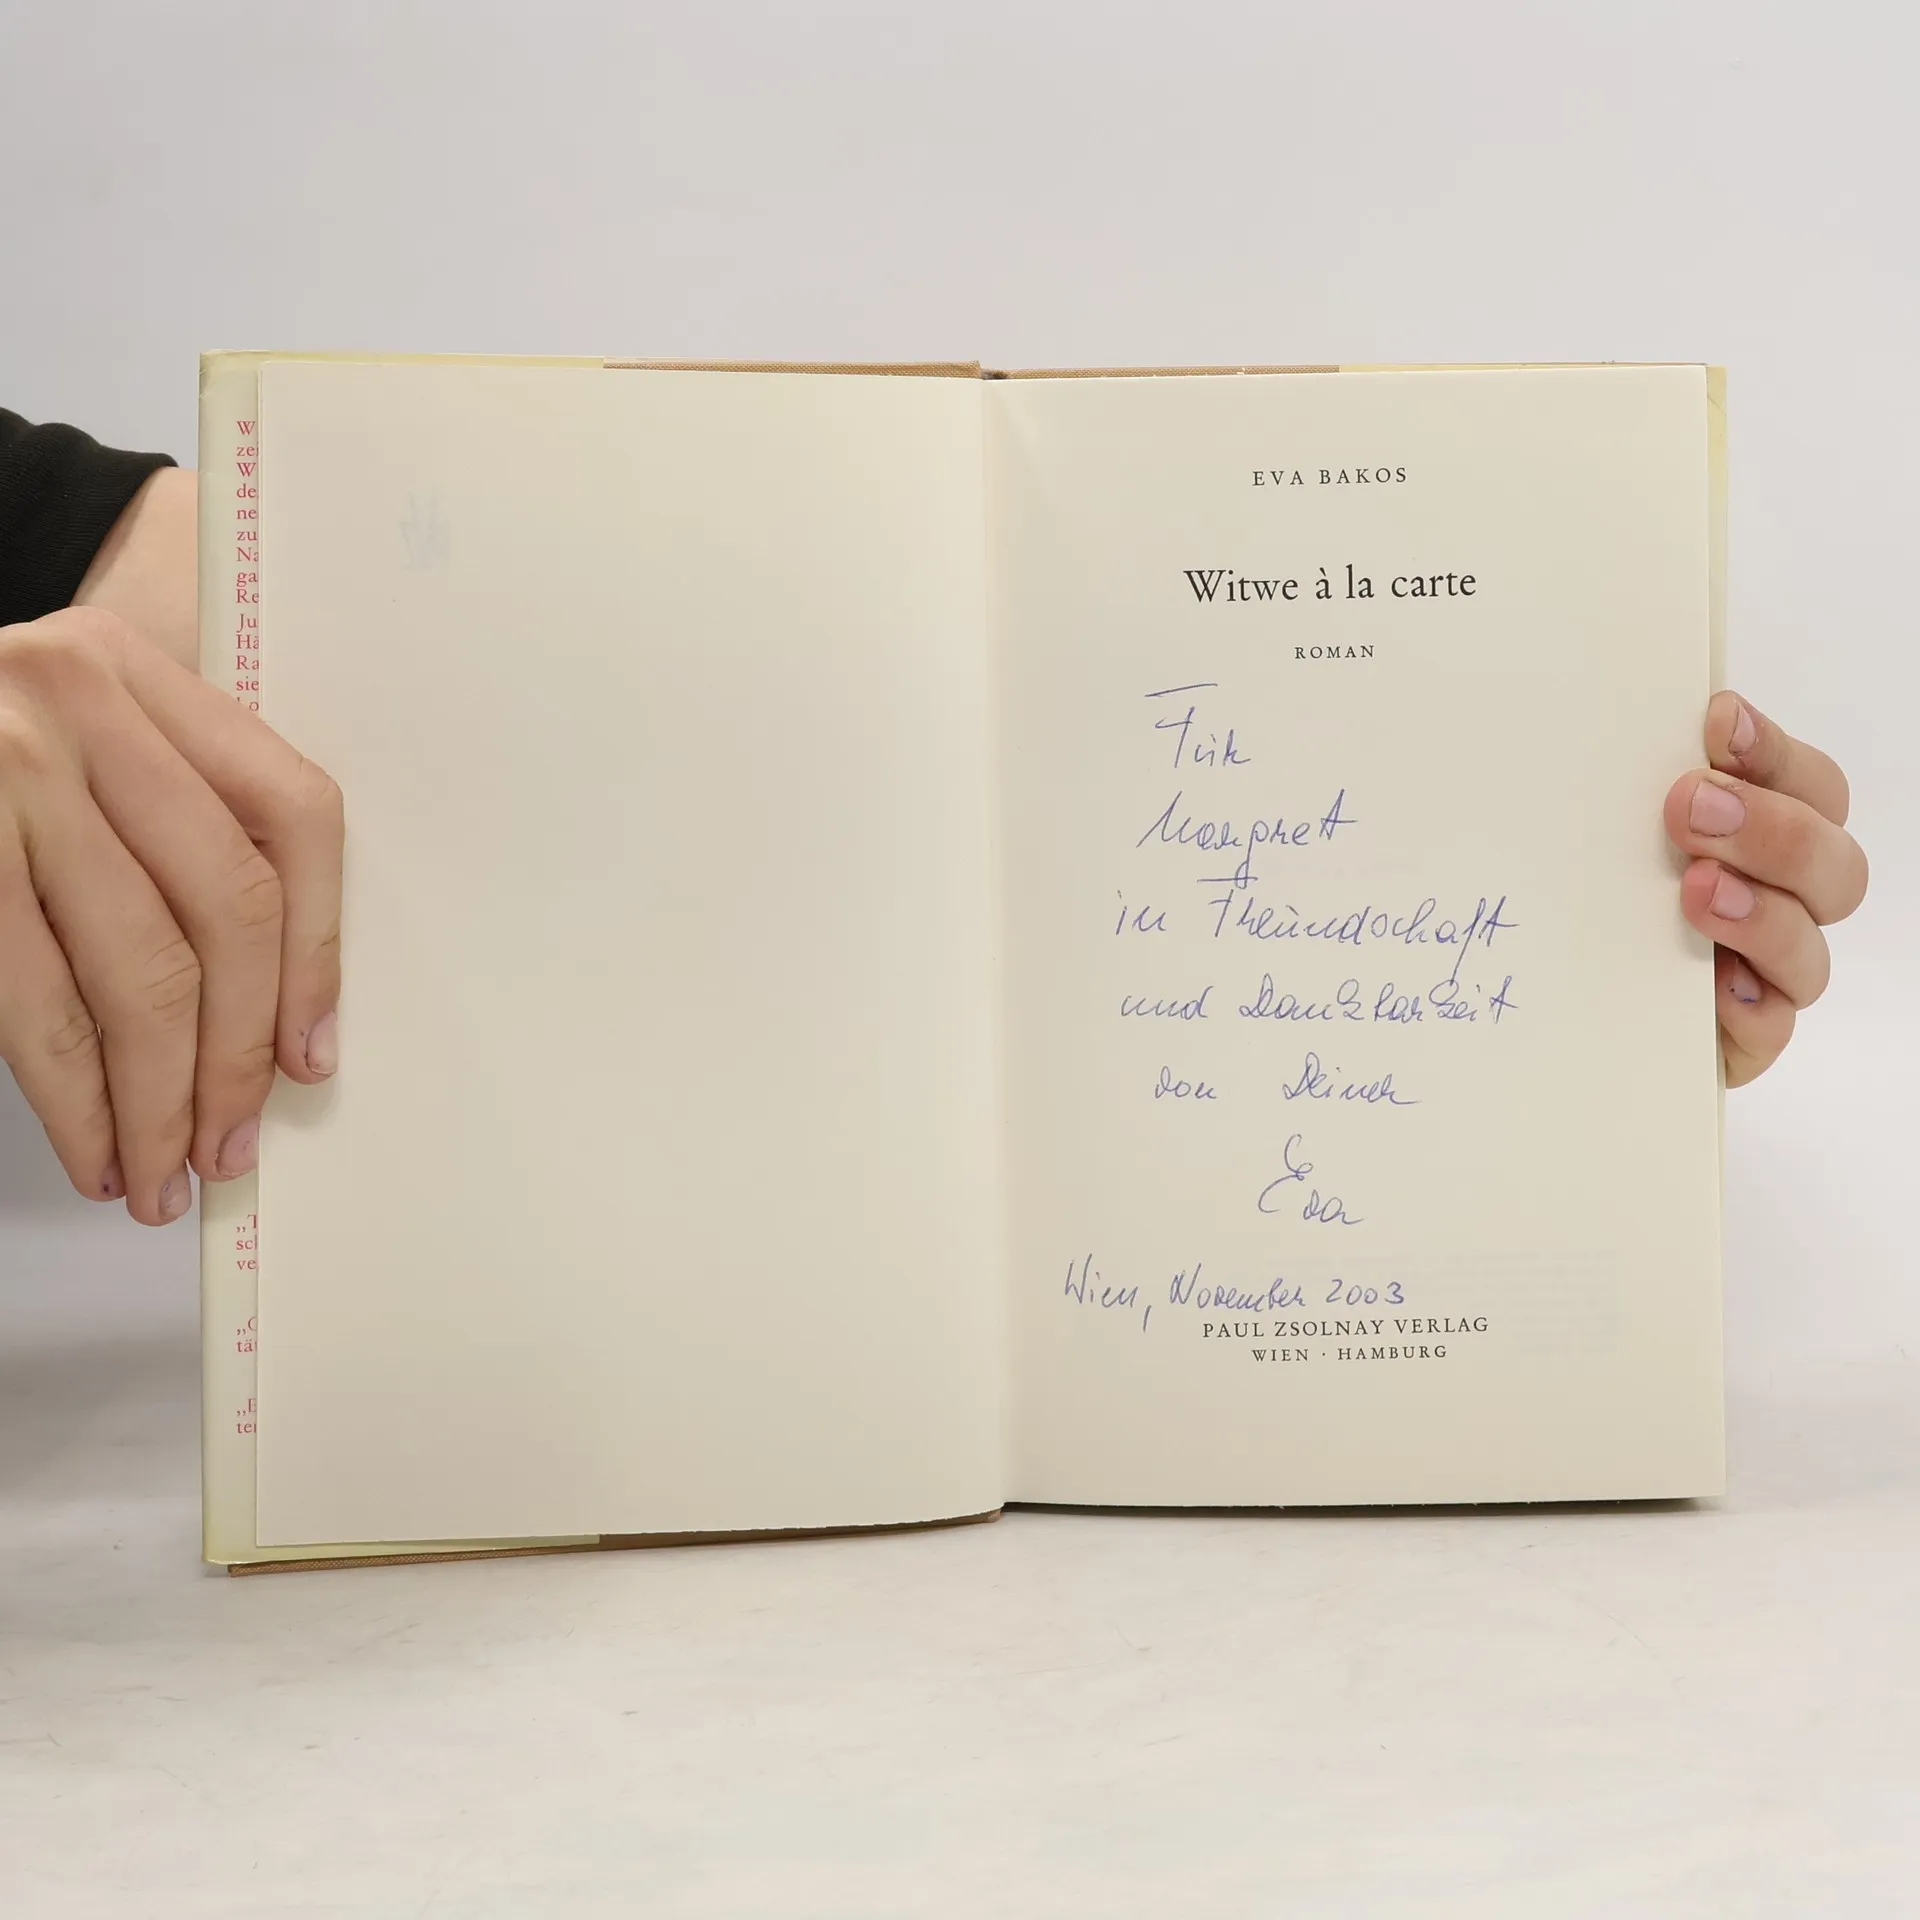 W
zei
W
de
ne
zu
Na
ga
Re
Ju
Hä
Ra
sie
Lo
„T
sch
ve
„C
tät
„E
ter
EVA BAKOS
Witwe à la carte
ROMAN
Für
Margret
in Freundschaft
und Dankbarkeit
von Deiner
Eva
Wien, November 2003
PAUL ZSOLNAY VERLAG
WIEN · HAMBURG